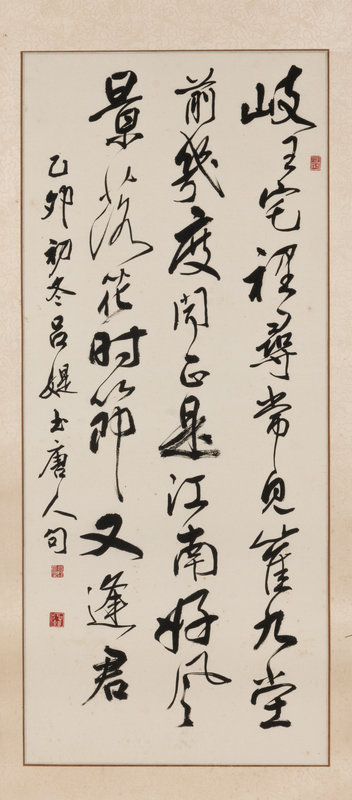 岐王宅裡尋常見崔九堂
前幾度聞正是江南好風
景落花时節又逢君
乙卯初冬呂媞書唐人句